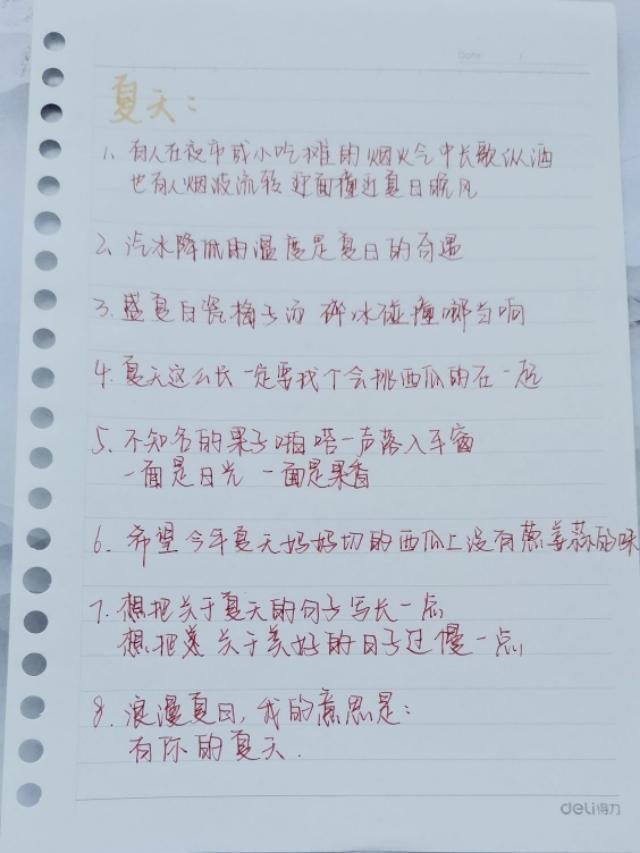 Date /
夏天：
1、有人在夜市或小吃摊的烟火气中长歌纵酒
也有人烟波流转 迎面撞近夏日晚风
2、汽水降低的温度是夏日的奇遇
3、盛夏白瓷梅子汤 碎冰碰撞啷当响
4、夏天这么长 一定要找个会挑西瓜的在一起
5、不知名的果子啪嗒一声落入车窗
一面是日光 一面是果香
6、希望今年夏天妈妈切的西瓜上没有葱姜蒜的味
7、想把关于夏天的句子写长一点
想把 关于美好的日子过慢一点
8、浪漫夏日，我的意思是：
有你的夏天.
deli得力